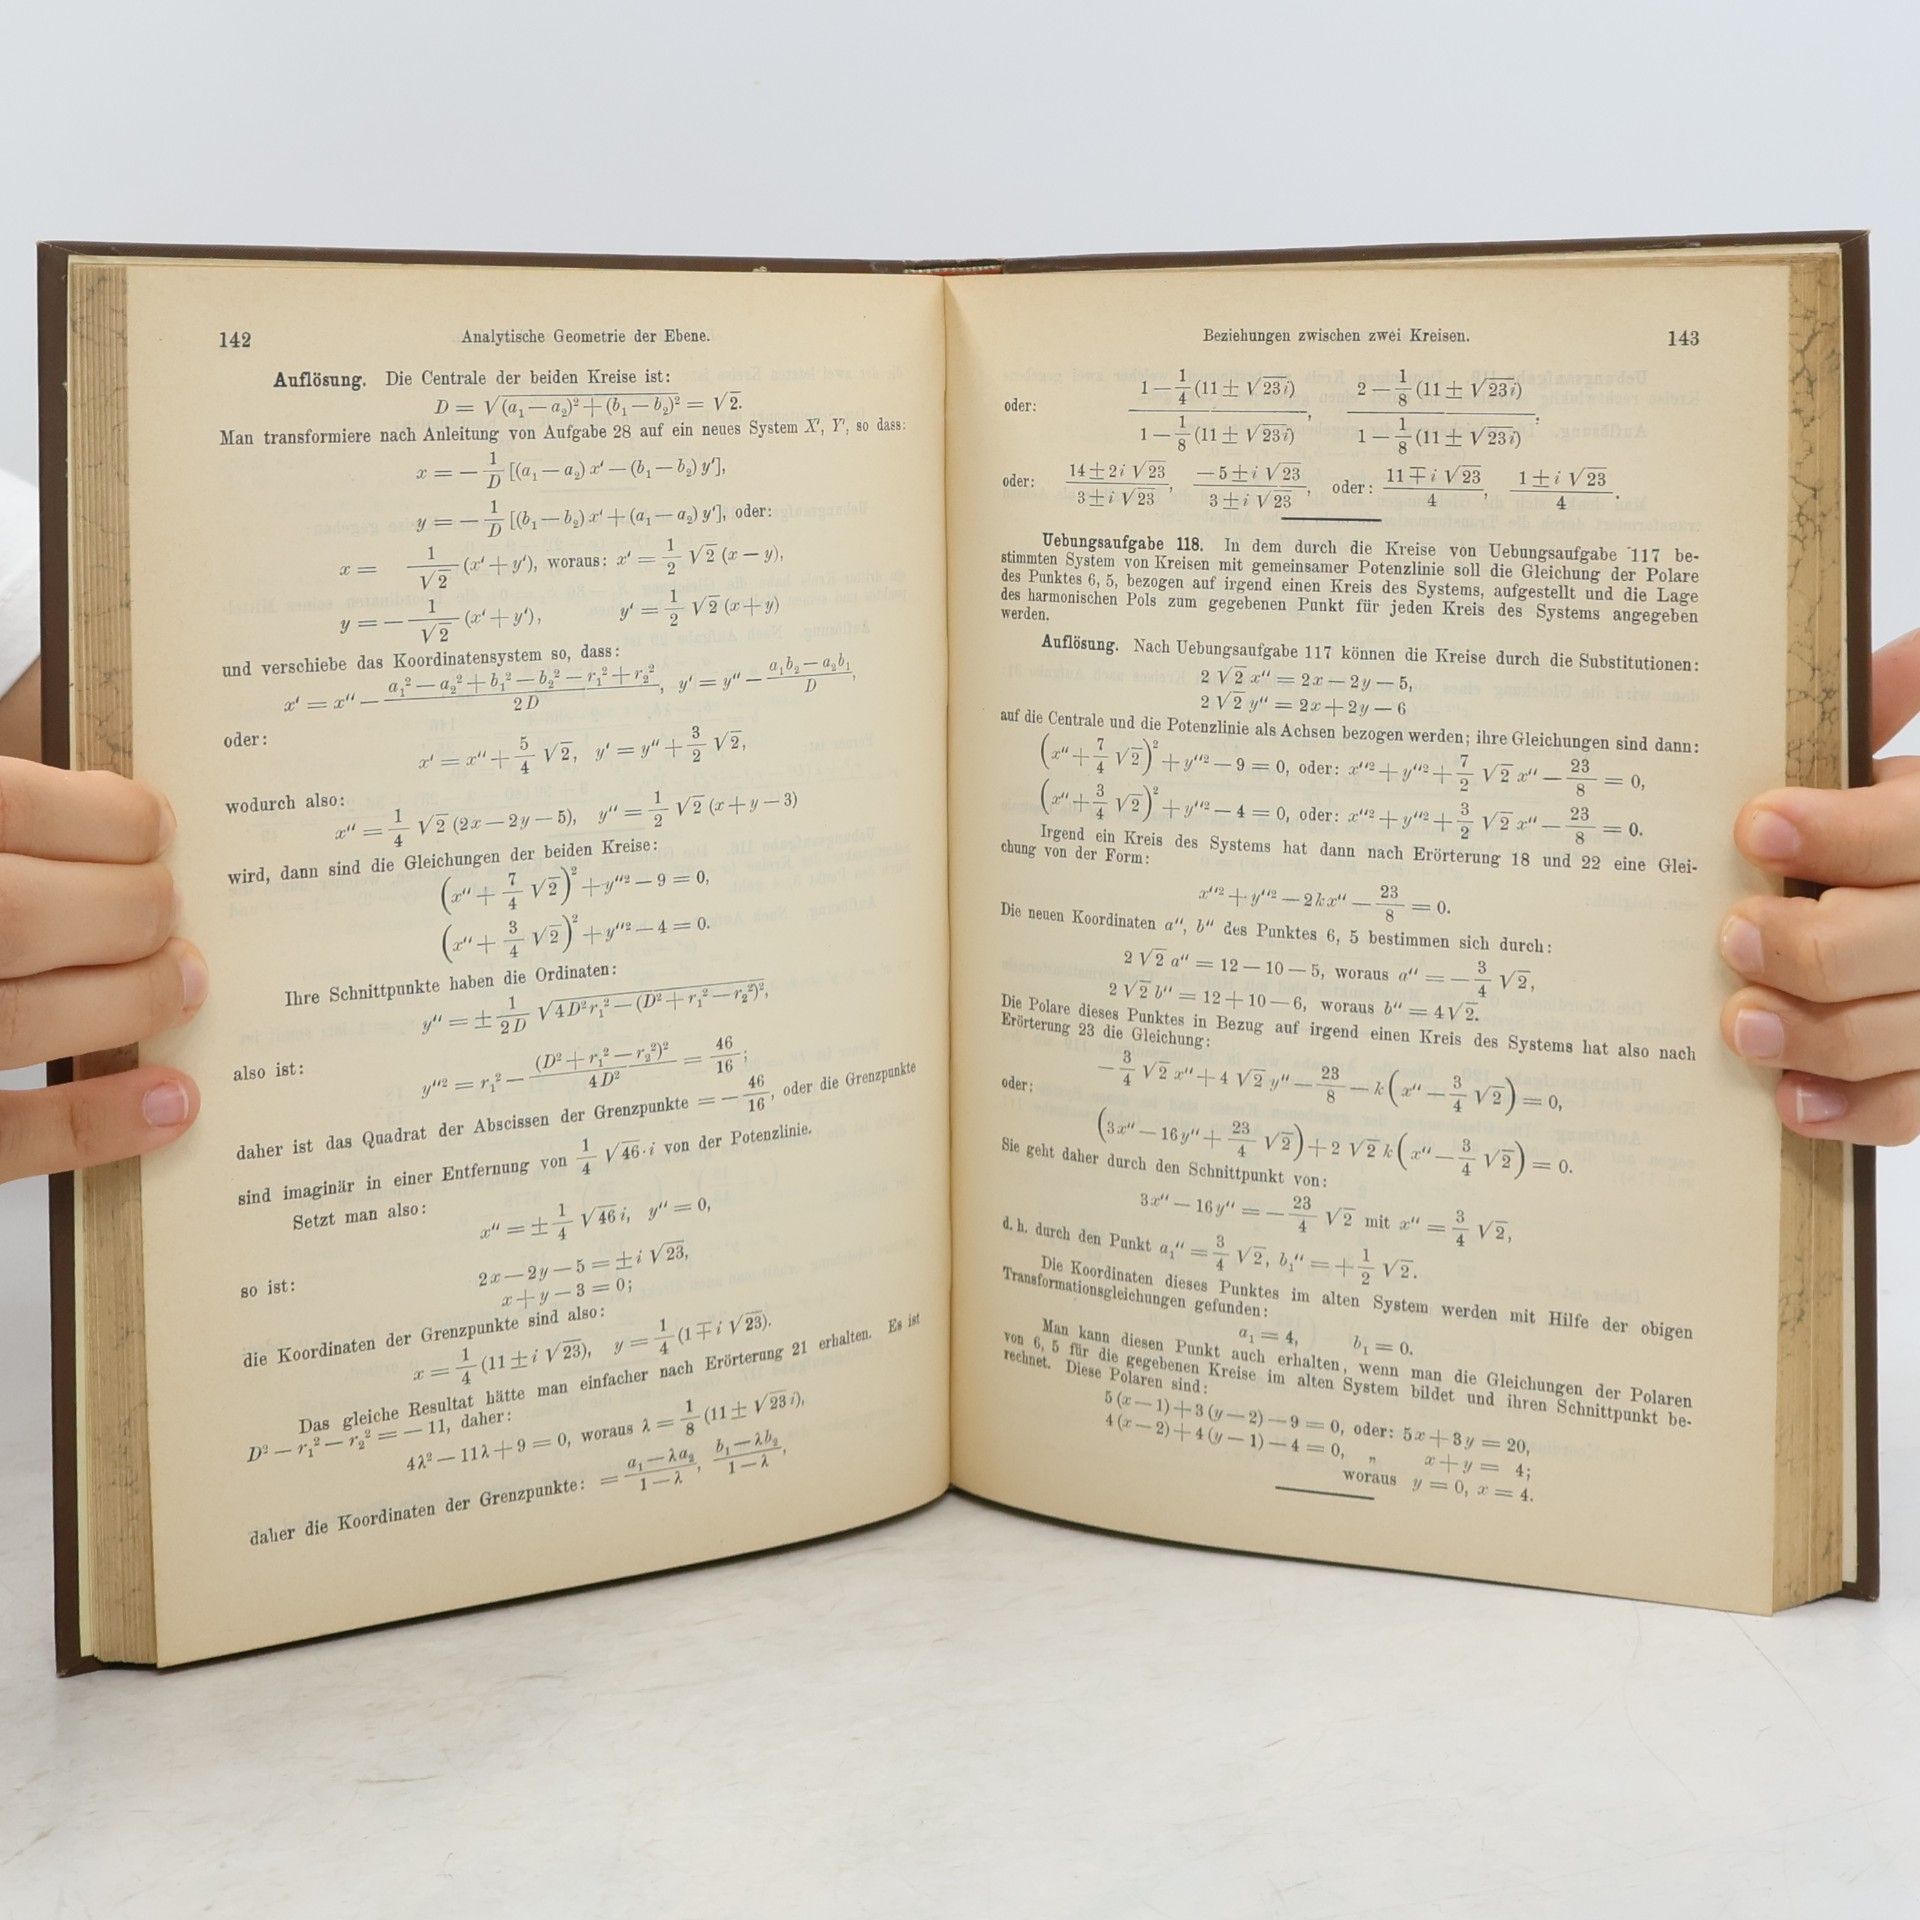 142
Analytische Geometrie der Ebene.
Auflösung. Die Centrale der beiden Kreise ist:
D = √((a₁ − a₂)² + (b₁ − b₂)²) = √2.
Man transformiere nach Anleitung von Aufgabe 28 auf ein neues System X', Y', so dass:
x = − 1/D [(a₁ − a₂) x' − (b₁ − b₂) y'],
y = − 1/D [(b₁ − b₂) x' + (a₁ − a₂) y'], oder:
x = 1/√2 (x' + y'), woraus: x' = 1/2 √2 (x − y),
y = − 1/√2 (x' + y'), y' = 1/2 √2 (x + y)
und verschiebe das Koordinatensystem so, dass:
x' = x'' − (a₁² − a₂² + b₁² − b₂² − r₁² + r₂²)/(2D), y' = y'' − (a₁b₂ − a₂b₁)/D,
oder:
x' = x'' + 5/4 √2, y' = y'' + 3/2 √2,
wodurch also:
x'' = 1/4 √2 (2x − 2y − 5), y'' = 1/2 √2 (x + y − 3)
wird, dann sind die Gleichungen der beiden Kreise:
(x'' + 7/4 √2)² + y''² − 9 = 0,
(x'' + 3/4 √2)² + y''² − 4 = 0.
Ihre Schnittpunkte haben die Ordinaten:
y'' = ± 1/(2D) √(4D²r₁² − (D² + r₁² − r₂²)²),
also ist:
y''² = r₁² − (D² + r₁² − r₂²)²/(4D²) = 46/16;
daher ist das Quadrat der Abscissen der Grenzpunkte = − 46/16, oder die Grenzpunkte
sind imaginär in einer Entfernung von 1/4 √46 · i von der Potenzlinie.
Setzt man also:
x'' = ± 1/4 √46 i, y'' = 0,
so ist:
2x − 2y − 5 = ± i √23,
x + y − 3 = 0;
die Koordinaten der Grenzpunkte sind also:
x = 1/4 (11 ± i √23), y = 1/4 (1 ∓ i √23).
Das gleiche Resultat hätte man einfacher nach Erörterung 21 erhalten. Es ist
D² − r₁² − r₂² = − 11, daher:
4λ² − 11λ + 9 = 0, woraus λ = 1/8 (11 ± √23 i),
daher die Koordinaten der Grenzpunkte: = (a₁ − λa₂)/(1 − λ), (b₁ − λb₂)/(1 − λ),
Beziehungen zwischen zwei Kreisen.
143
oder: (1 − 1/4 (11 ± √23 i))/(1 − 1/8 (11 ± √23 i)), (2 − 1/8 (11 ± √23 i))/(1 − 1/8 (11 ± √23 i));
oder: (14 ± 2i √23)/(3 ± i √23), (−5 ± i √23)/(3 ± i √23), oder: (11 ∓ i √23)/4, (1 ± i √23)/4.
Uebungsaufgabe 118. In dem durch die Kreise von Uebungsaufgabe 117 be-
stimmten System von Kreisen mit gemeinsamer Potenzlinie soll die Gleichung der Polare
des Punktes 6, 5, bezogen auf irgend einen Kreis des Systems, aufgestellt und die Lage
des harmonischen Pols zum gegebenen Punkt für jeden Kreis des Systems angegeben
werden.
Auflösung. Nach Uebungsaufgabe 117 können die Kreise durch die Substitutionen:
2 √2 x'' = 2x − 2y − 5,
2 √2 y'' = 2x + 2y − 6
auf die Centrale und die Potenzlinie als Achsen bezogen werden; ihre Gleichungen sind dann:
(x'' + 7/4 √2)² + y''² − 9 = 0, oder: x''² + y''² + 7/2 √2 x'' − 23/8 = 0,
(x'' + 3/4 √2)² + y''² − 4 = 0, oder: x''² + y''² + 3/2 √2 x'' − 23/8 = 0.
Irgend ein Kreis des Systems hat dann nach Erörterung 18 und 22 eine Glei-
chung von der Form:
x''² + y''² − 2kx'' − 23/8 = 0.
Die neuen Koordinaten a'', b'' des Punktes 6, 5 bestimmen sich durch:
2 √2 a'' = 12 − 10 − 5, woraus a'' = − 3/4 √2,
2 √2 b'' = 12 + 10 − 6, woraus b'' = 4 √2.
Die Polare dieses Punktes in Bezug auf irgend einen Kreis des Systems hat also nach
Erörterung 23 die Gleichung:
− 3/4 √2 x'' + 4 √2 y'' − 23/8 − k (x'' − 3/4 √2) = 0,
oder:
(3x'' − 16y'' + 23/4 √2) + 2 √2 k (x'' − 3/4 √2) = 0.
Sie geht daher durch den Schnittpunkt von:
3x'' − 16y'' = − 23/4 √2 mit x'' = 3/4 √2,
d. h. durch den Punkt a₁'' = 3/4 √2, b₁'' = + 1/2 √2.
Die Koordinaten dieses Punktes im alten System werden mit Hilfe der obigen
Transformationsgleichungen gefunden:
a₁ = 4, b₁ = 0.
Man kann diesen Punkt auch erhalten, wenn man die Gleichungen der Polaren
von 6, 5 für die gegebenen Kreise im alten System bildet und ihren Schnittpunkt be-
rechnet. Diese Polaren sind:
5 (x − 1) + 3 (y − 2) − 9 = 0, oder: 5x + 3y = 20,
4 (x − 2) + 4 (y − 1) − 4 = 0, „ x + y = 4;
woraus y = 0, x = 4.